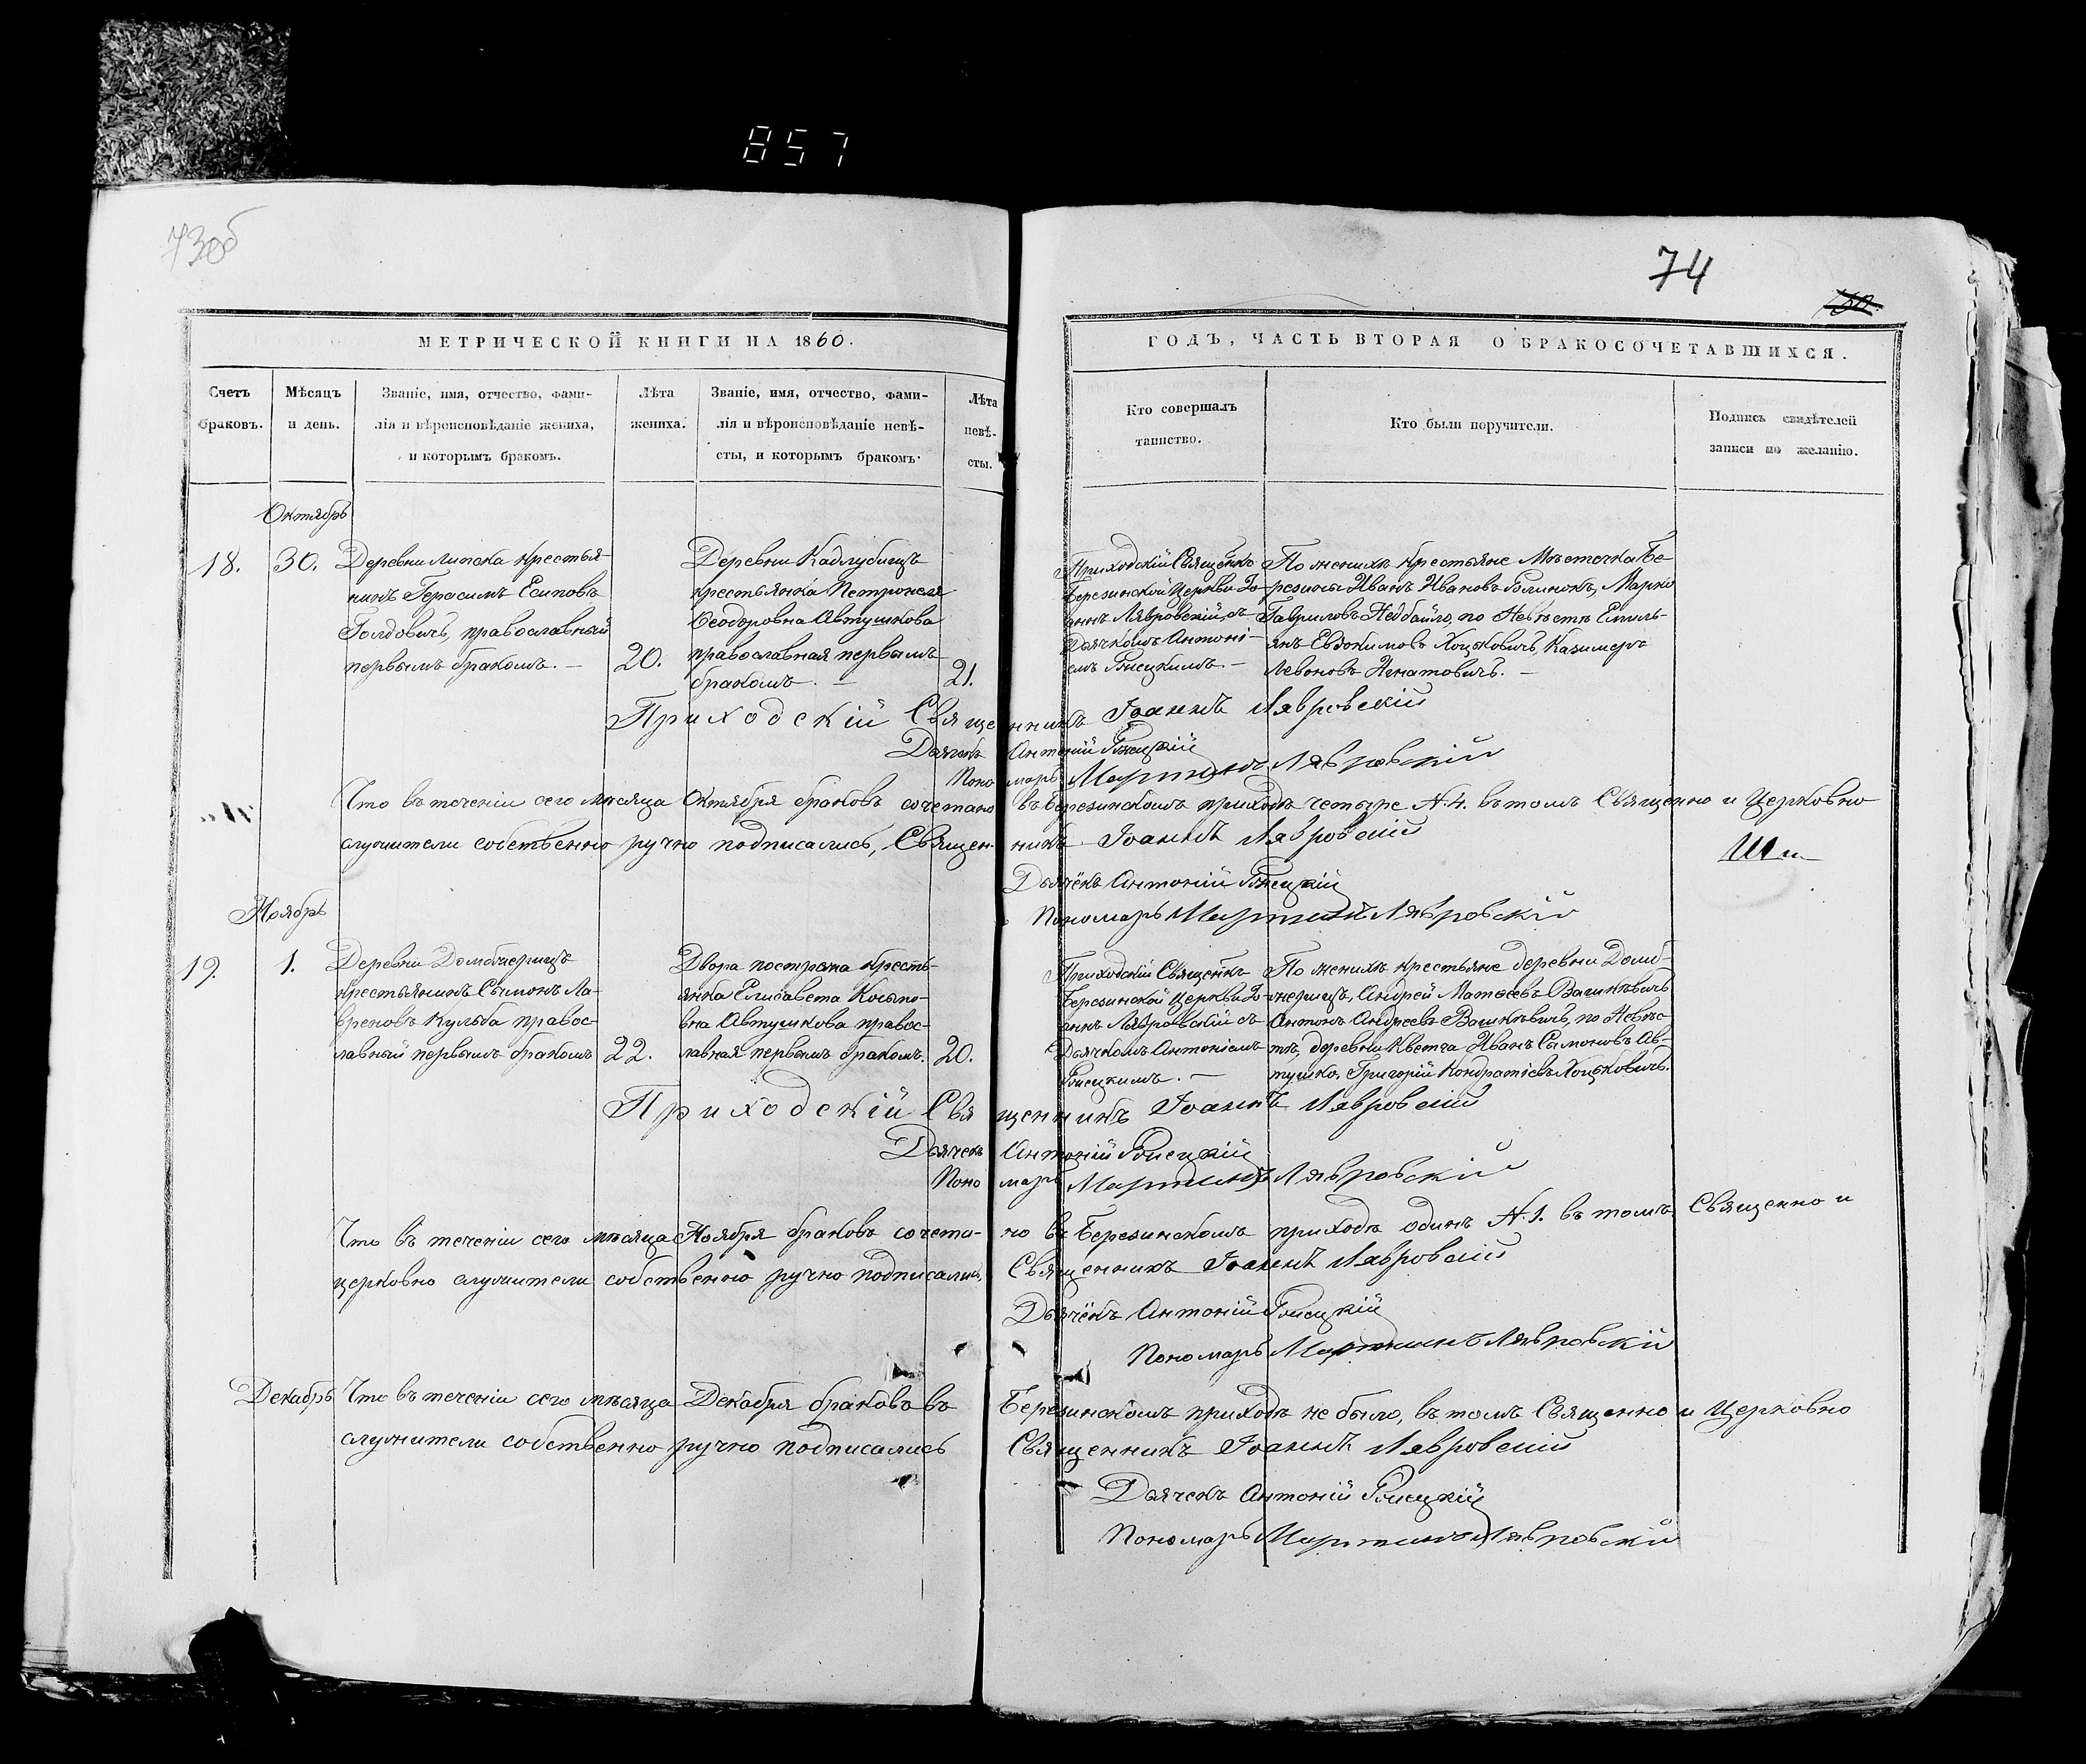 857
73об
МЕТРИЧЕСКОЙ КНИГИ НА 1860.
Счетъ браковъ.
Мѣсяцъ и день.
Званіе, имя, отчество, фами-
лія и вѣроисповѣданіе жениха,
и которымъ бракомъ.
Лѣта
жениха.
Званіе, имя, отчество, фами-
лія и вѣроисповѣданіе невѣ-
сты, и которымъ бракомъ.
Лѣта
невѣ-
сты.
Октябрь
18.
30.
Деревни Липска крестья-
нинъ Герасимъ Есиповъ
Голдовичь, православный
первымъ бракомъ. —
20.
Деревни Кадлубищъ
крестьянка Петронеля
Ѳеодоровна Автушкова
православная первымъ
бракомъ. —
21.
74
ГОДЪ, ЧАСТЬ ВТОРАЯ О БРАКОСОЧЕТАВШИХСЯ.
Кто совершалъ
таинство.
Кто были поручители.
Подпись свидѣтелей
записи по желанію.
Приходскій Священкъ
Березинской Церкви Іо-
аннъ Лявровскій, съ
Дьячкомъ Антоні-
емъ
По женихѣ крестьяне Мѣстечка Бе-
резины Иванъ Ивановъ Марко
Гавриловъ Недбайло, по Невѣстѣ Емиль-
янъ Евдокимовъ Хоцьковичь, Казимеръ
Левоновъ Игнатовичь. —
Приходскій Священникъ Іоаннъ Лявровскій
Дьячекъ Антоній
Пономарь Мартинъ Лявровскій
Что въ теченіи сего мѣсяца Октября браковъ сочетано въ Березинскомъ приходѣ четыре N. 4. въ томъ Священно и Церковно
служители собственно ручно подписались, Священникъ Іоаннъ Лявровскій
Дьячёкъ Антоній
Пономарь Мартинъ Лявровскій
Ноябрь
19.
1.
Деревни
крестьянинъ Сымонъ Ла-
вреновъ Кульба правос-
лавный первымъ бракомъ
22.
Двора крестъ-
янка Елисавета
вна Автушкова правос-
лавная первымъ бракомъ.
20.
Приходскій Священкъ
Березинской Церкви Іо-
аннъ Лявровскій съ
Дьячкомъ Антоніемъ
По женихѣ крестьяне деревни
Андрей Матѳеевъ Вашкѣвичь
Антонъ Андреевъ Вашкѣвичь, по Невѣс-
тѣ, деревни Кветча Иванъ Сымоновъ Ав-
тушко, Григорій Кондратіевъ Хоцьковичь.
Приходскій Священникъ Іоаннъ Лявровскій
Дьячекъ Антоній
Пономарь Мартинъ Лявровскій
Что въ теченіи сего мѣсяца Ноября браковъ сочета-но въ Березинскомъ приходѣ одинъ N. 1. въ томъ Священно и
церковно служители собственно ручно подписались, Священникъ Іоаннъ Лявровскій
Дьячёкъ Антоній
Пономарь Мартинъ Лявровскій
Декабрь
Что въ теченіи сего мѣсяца Декабря браковъ въ Березинскомъ приходѣ не было, въ томъ Священно и Церковно
служители собственно ручно подписались Священникъ Іоаннъ Лявровскій
Дьячекъ Антоній
Пономарь Мартинъ Лявровскій